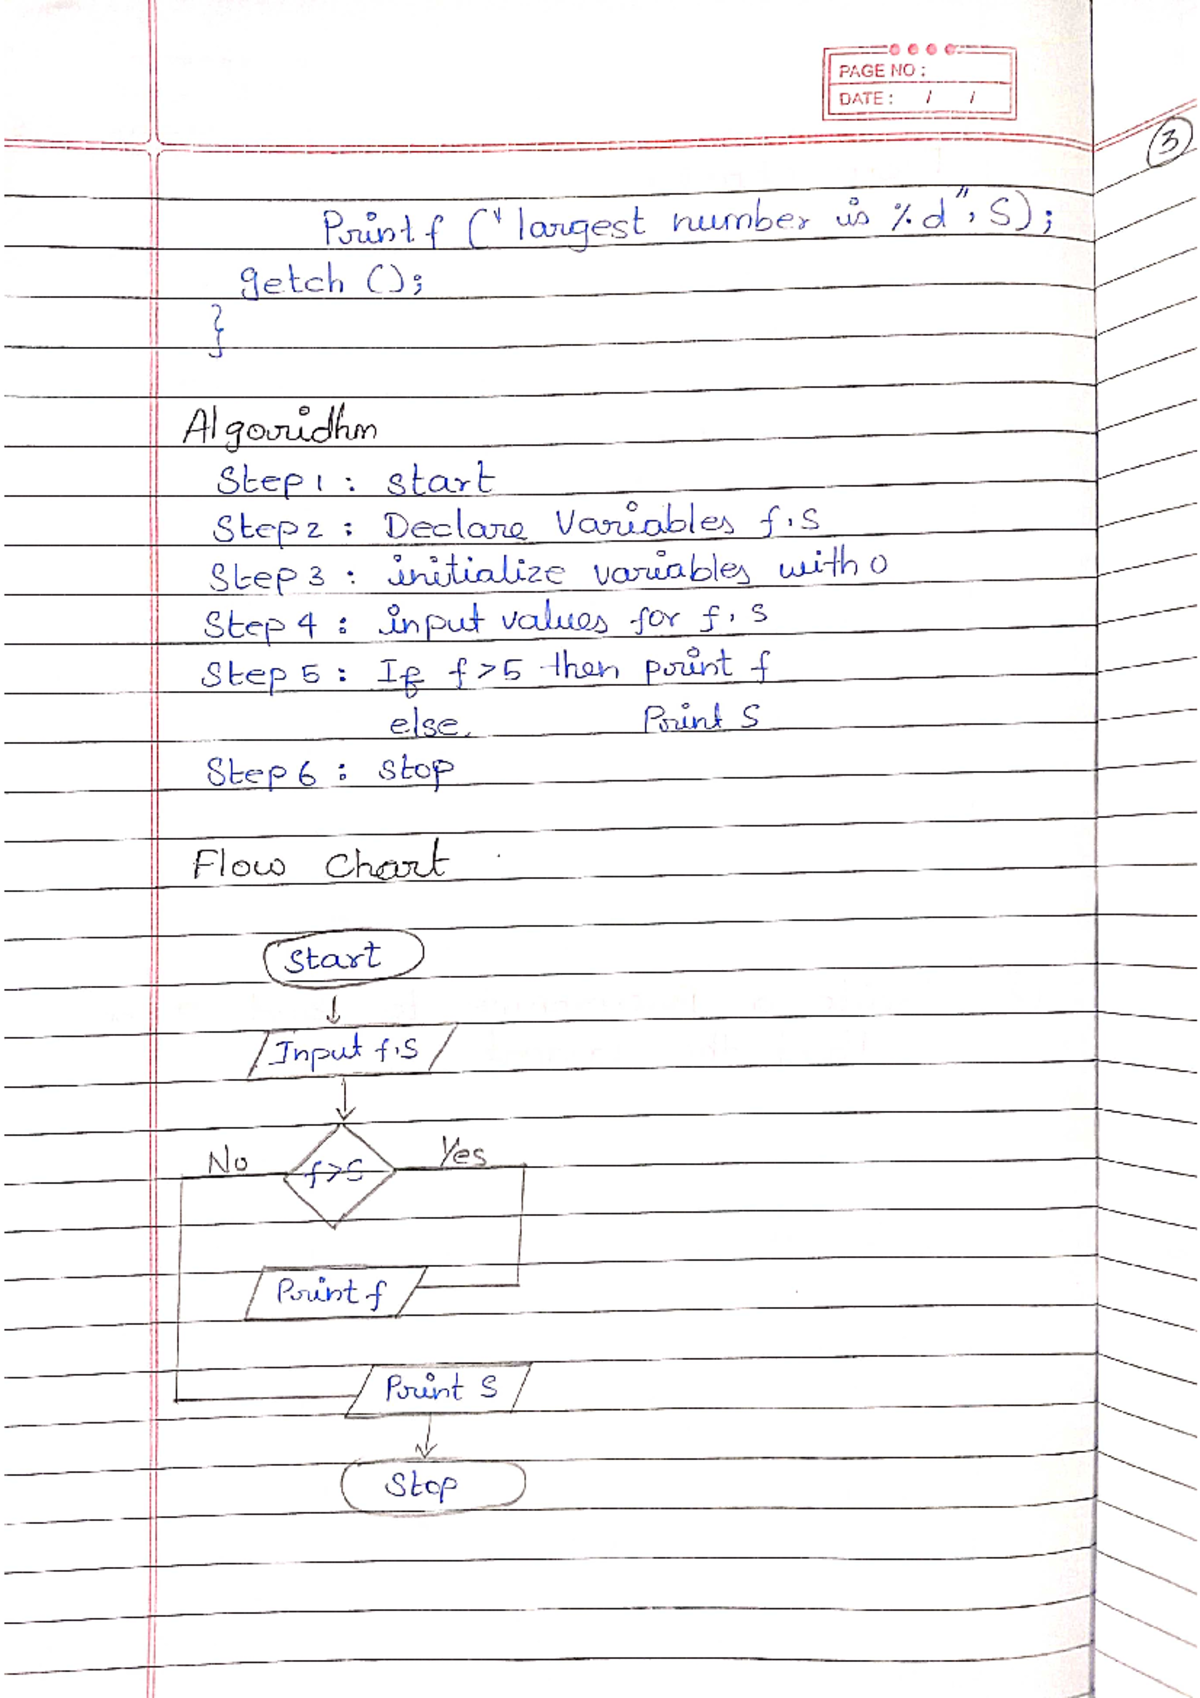 PAGE NO :
DATE : / /
3
Printf ("largest number is %d", S);
getch ();
}
Algoridhm
Step 1 : start
Step 2 : Declare Variables f, S
Step 3 : initialize variables with 0
Step 4 : input values for f, S
Step 5 : If f > 5 then print f
else Print S
Step 6 : stop
Flow Chart
Start
Input f, S
No f>S Yes
Print f
Print S
Stop